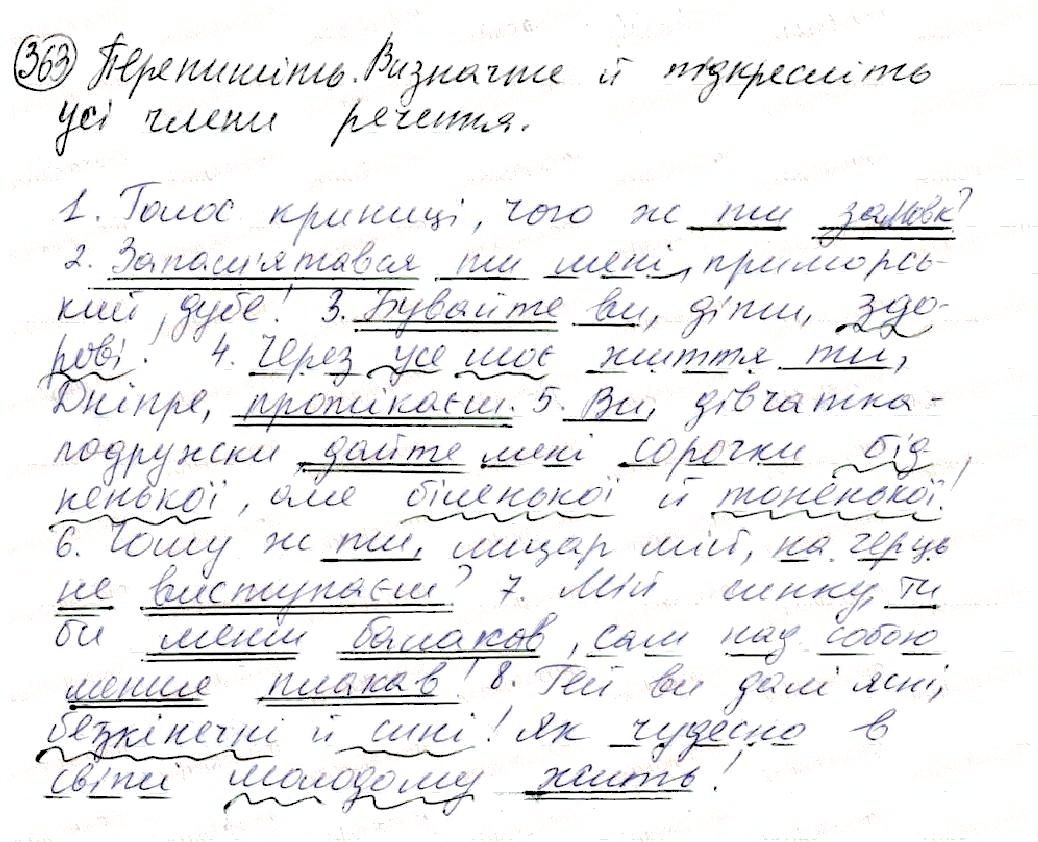 363 Перепишіть. Визначте й підкресліть
усі члени речення.
1. Голос криниці, чого ж ти замовк?
2. Запам'ятався ти мені, приморсь-
кий, дубе! 3. Бувайте ви, діти, здо-
рові! 4. Через усе моє життя ти,
Дніпре, протікаєш. 5. Ви, дівчатка-
подружки, дайте мені сорочки бід-
ненької, але біленької й тоненької!
6. Чому ж ти, лицар мій, на герць
не виступаєш? 7. Мій синку, ти
би менш балакав, сам над собою
менше плакав! 8. Гей ви далі ясні,
безкінечні й сині! Як чудесно в
світі молодому жить!